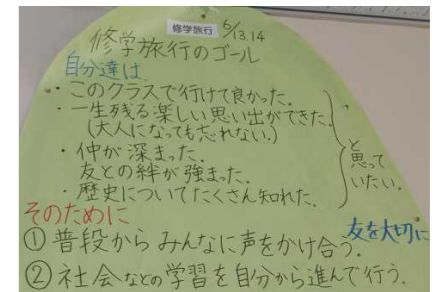 修学旅行 6/13.14
修学旅行のゴール
自分達は
・このクラスで行けて良かった。
・一生残る楽しい思い出ができた。
(大人になっても忘れない。)
・仲が深まった。
友との絆が強まった。
・歴史についてたくさん知れた。
と思っていたい。
そのために
友を大切に
① 普段からみんなに声をかけ合う。
② 社会などの学習を自分から進んで行う。